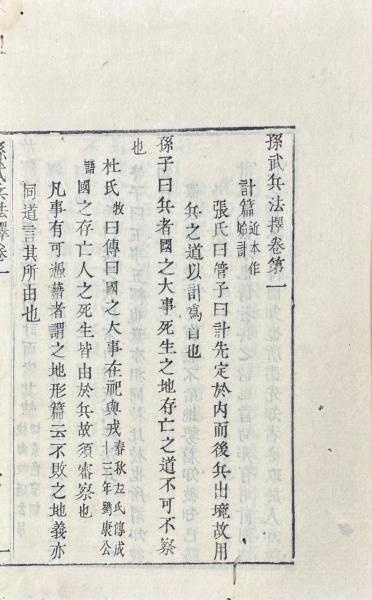 孫武兵法擇卷第一
計篇近本作始計
張氏曰管子曰計先定於內而後兵出境故用
兵之道以計爲首也
孫子曰兵者國之大事死生之地存亡之道不可不察
也
杜氏牧曰傳曰國之大事在祀與戎春秋左氏傳成十三年劉康公
語國之存亡人之死生皆由於兵故須審察也
凡事有可憑藉者謂之地形篇云不敗之地義亦
同道言其所由也
孫武兵法擇卷一